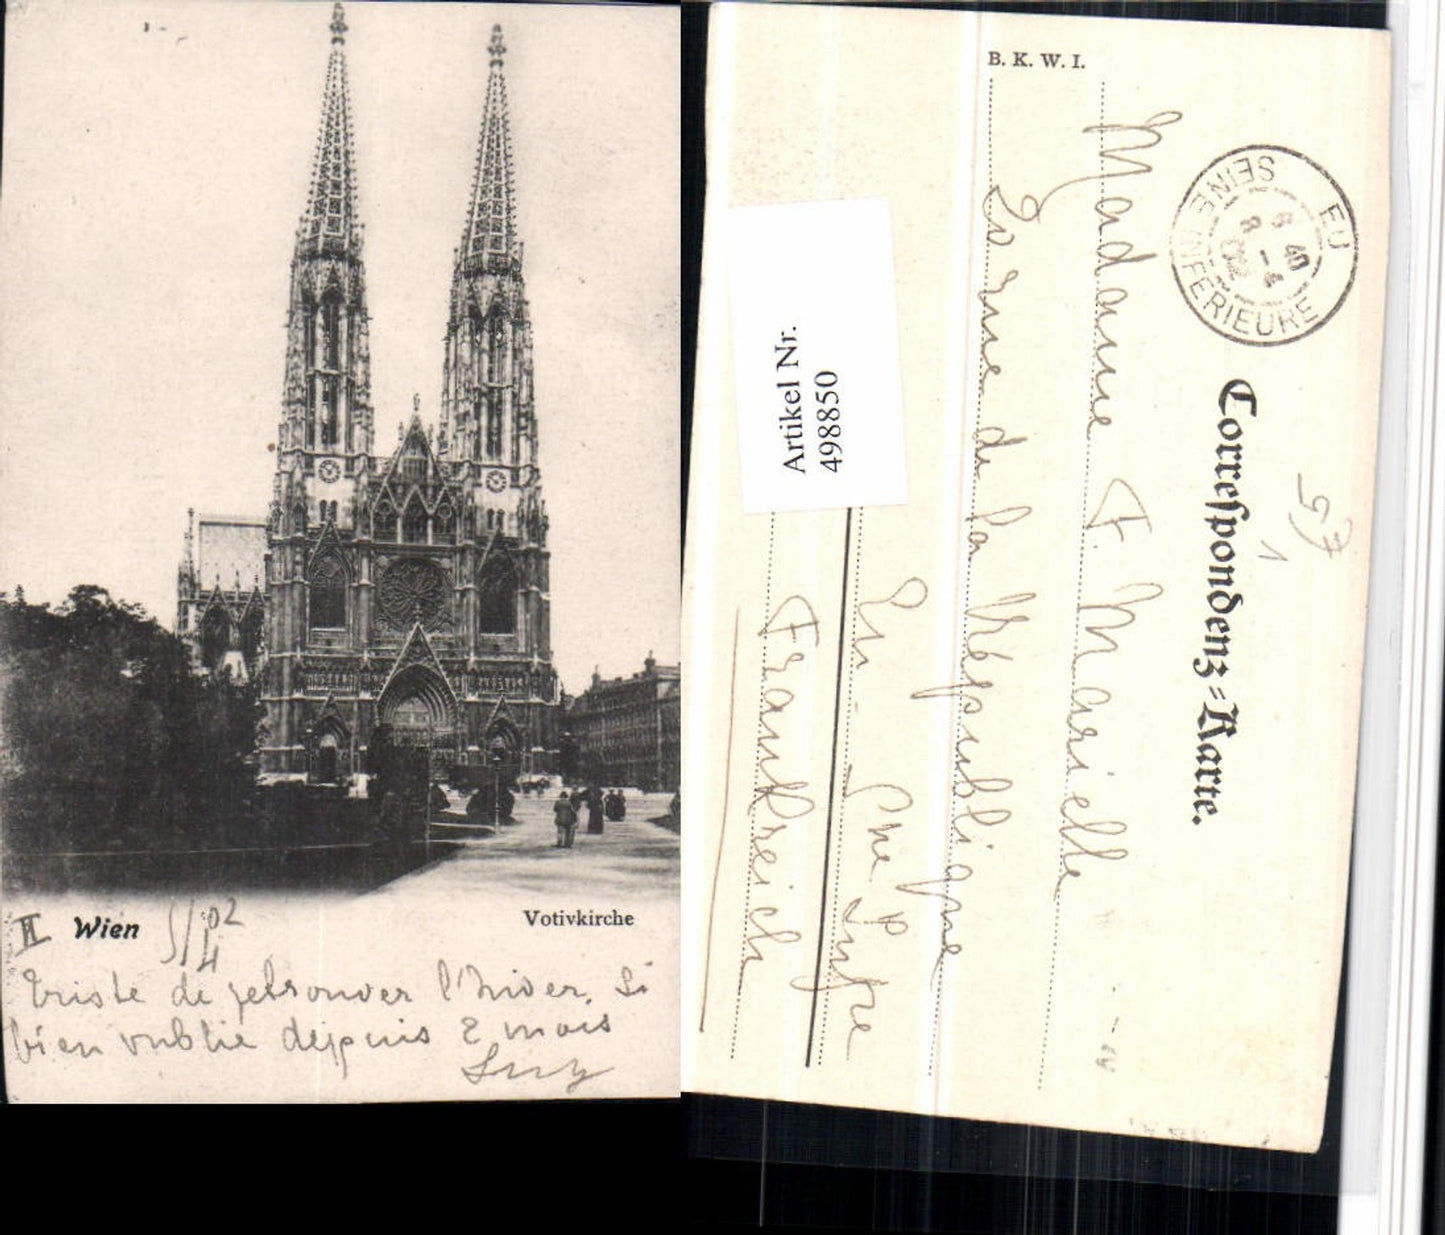 II Wien 5/4 02
Votivkirche
triste de retrouver l'hiver, si
bien oublié depuis 2 mois
Suzy
B. K. W. I.
Correspondenz-Karte.
EU
SEINE INFERIEURE
6 40
8 - 4
02
57
1
Madame F. Marielle
rue de la République
Eu - Sne Infre
Frankreich
Artikel Nr.
498850